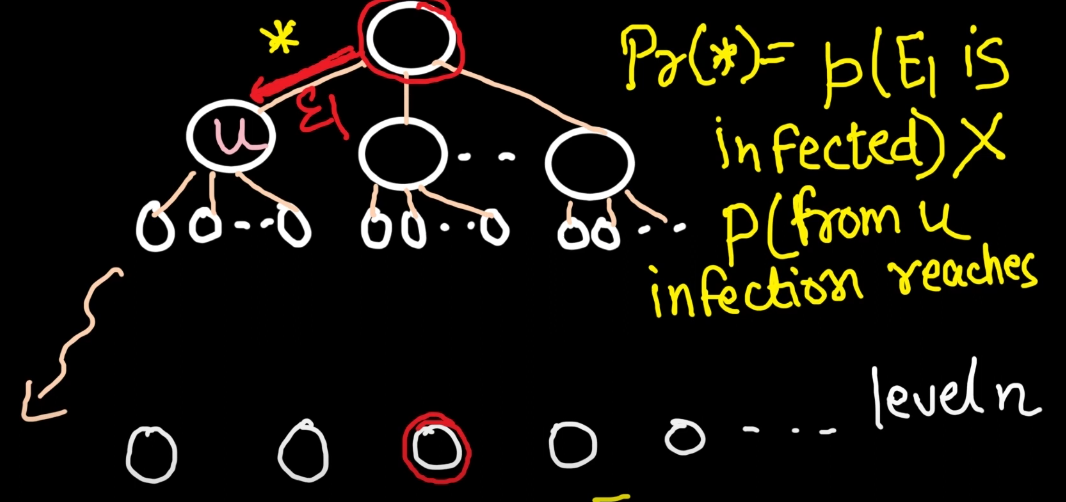 *
Pr(*)= p(E1 is
infected) X
p(from u
infection reaches
E1
u
level n